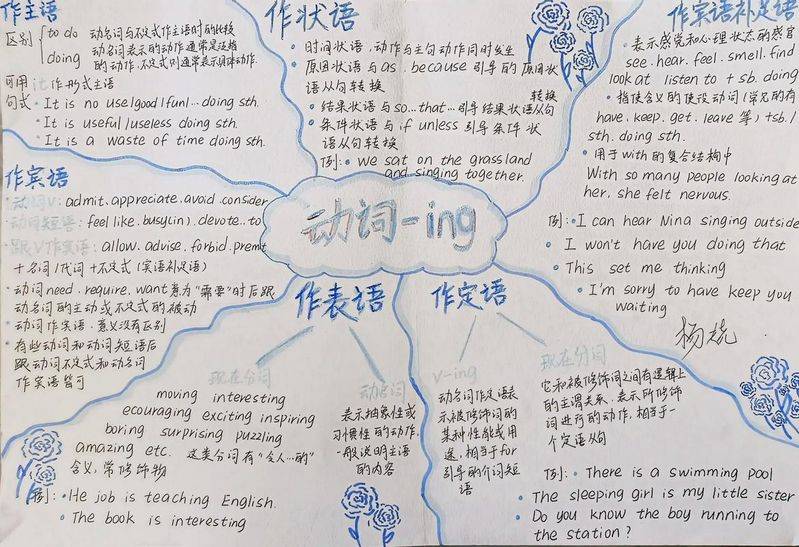 作主语
区别 to do 动名词与不定式作主语时的比较
doing 动名词表示的动作通常是泛指
的动作,不定式则通常表示具体动作.
可用 it 作形式主语
句式 · It is no use/good/fun/...doing sth.
· It is useful/useless doing sth.
· It is a waste of time doing sth.
作状语
· 时间状语,动作与主句动作同时发生
原因状语与as、because引导的原因状
语从句转换 转换
· 结果状语与so...that...引导结果状语从句
· 条件状语与if unless引导条件状
语从句转换
例: · We sat on the grassland
and singing together.
作宾语补足语
· 表示感觉和心理状态的感官
see.hear.feel.smell.find
look at listen to + sb. doing
· 指使含义的使役动词(常见的有
have.keep.get.leave等)+sb./
sth. doing sth.
· 用于with的复合结构中
With so many people looking at
her, she felt nervous.
例: · I can hear Nina singing outside
· I won't have you doing that
· This set me thinking
· I'm sorry to have keep you
waiting
作宾语
动词V: admit.appreciate.avoid.consider
动词短语: feel like.busy(in).devote..to
跟V作宾语: allow.advise.forbid.premit
+名词/代词+不定式(宾语补足语)
· 动词need.require.want意为"需要"时后跟
动名词的主动或不定式的被动
· 动词作宾语,意义没有区别
· 有些动词和动词短语后
跟动词不定式和动名词
作宾语皆可
动词-ing
作表语
现在分词
moving interesting
ecouraging exciting inspiring
boring surprising puzzling
amazing etc. 这类分词有"令人...的"
含义,常修饰物
动名词
表示抽象性或
习惯性的动作,
一般说明主语
的内容
例: · He job is teaching English.
· The book is interesting
作定语
V-ing
动名词作定语表
示被修饰词的
某种性能或用
途,相当于for
引导的介词短
语
现在分词
它和被修饰词之间有逻辑上
的主谓关系,表示所修饰
词进行的动作,相当于一
个定语从句
例: · There is a swimming pool
· The sleeping girl is my little sister
· Do you know the boy running to
the station?